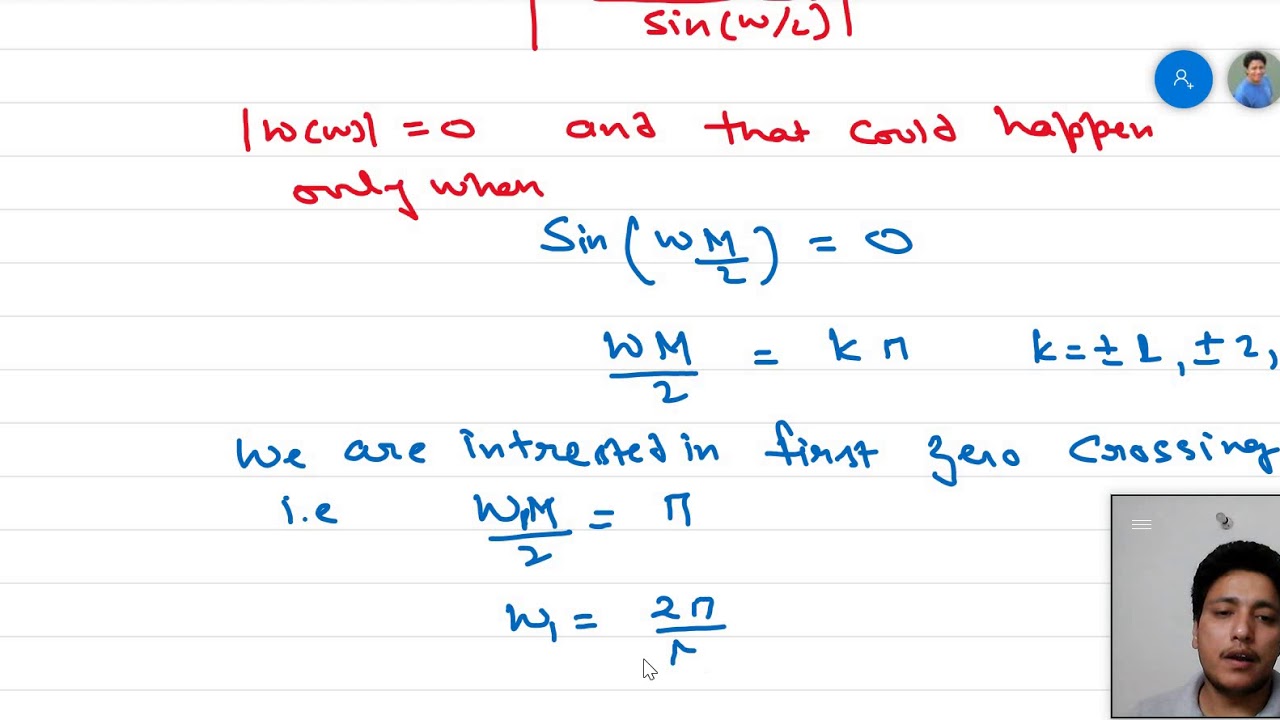 sin(w/2)
|W(w)| = 0 and that could happen
only when
Sin(w M/2) = 0
wM/2 = k π k = ± 1, ± 2,
We are intrested in first zero crossing
i.e w₁M/2 = π
w₁ = 2π/